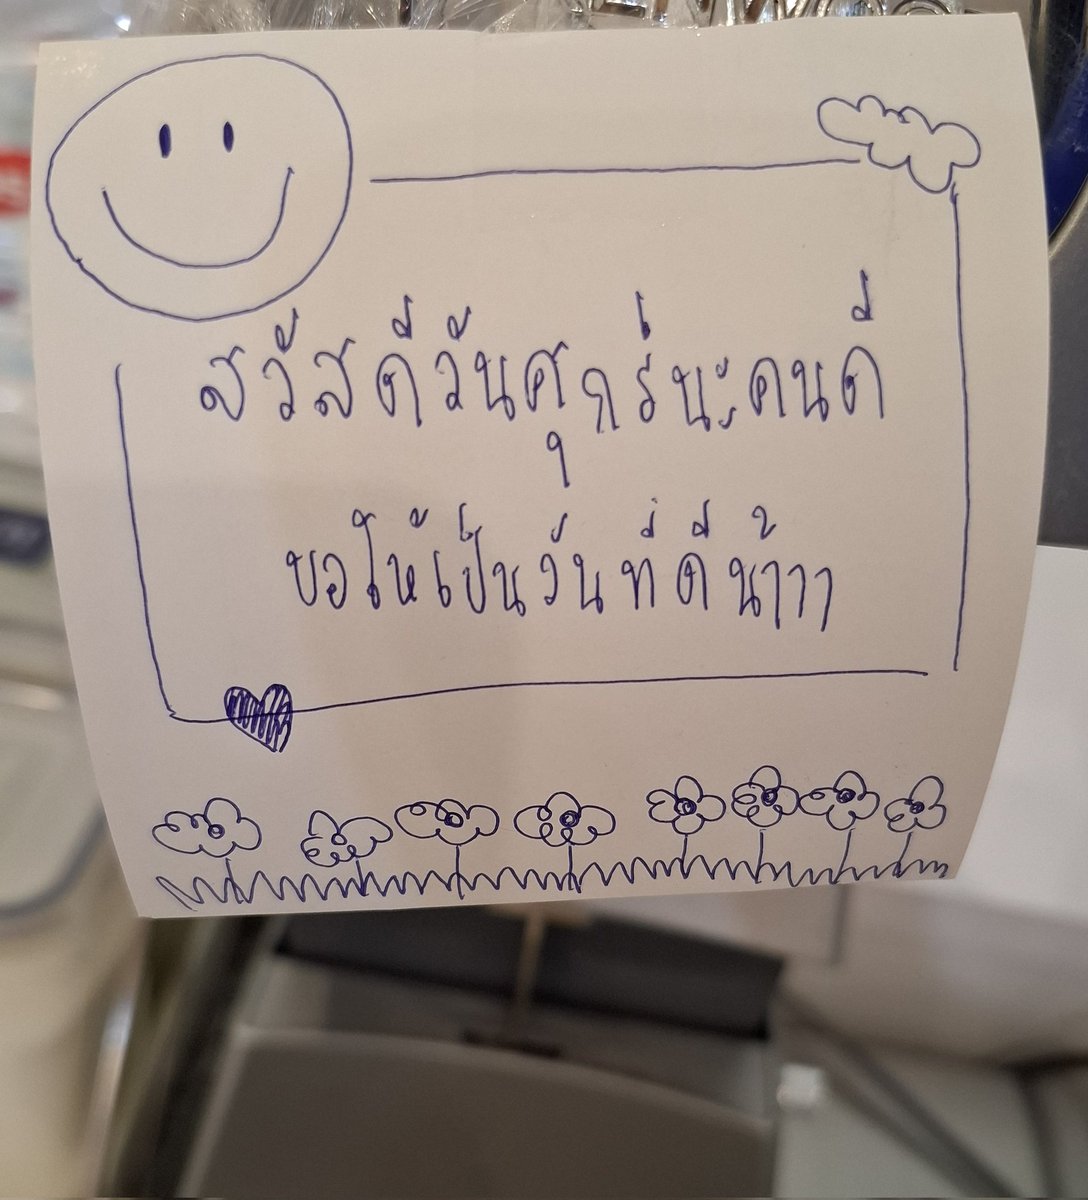 สวัสดีวันศุกร์นะคนดี
ขอให้เป็นวันที่ดีน้าาา